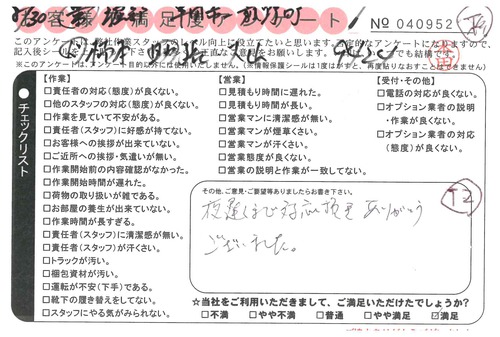 お客様満足度アンケート！
NO 040952
このアンケートは、弊社作業スタッフのスキル向上に役立てたいと思います。
記入後シールを
※このアンケートは、アンケート目的以外には使用いたしません。(※情報保護シールは1度はがすと、再度貼りなおすことはできません)
チェックリスト
【作業】
□責任者の対応(態度)が良くない。
□他のスタッフの対応(態度)が良くない。
□作業を見ていて不安がある。
□責任者(スタッフ)に好感が持てない。
□お客様への挨拶が出来ていない。
□ご近所への挨拶・気遣いが無い。
□作業開始前の内容確認がなかった。
□作業開始時間が遅れた。
□荷物の取り扱いが雑である。
□お部屋の養生が出来ていない。
□作業時間が長すぎる。
□責任者(スタッフ)に清潔感が無い。
□責任者(スタッフ)が汗くさい。
□トラックが汚い。
□梱包資材が汚い。
□運転が不安(下手)である。
□靴下の履き替えをしてない。
□スタッフにやる気がみられない。
【営業】
□見積もり時間に遅れた。
□見積もり時間が長い。
□営業マンに清潔感が無い。
□営業マンが煙草くさい。
□営業マンが汗くさい。
□営業態度が良くない。
□営業の説明と作業が一致してない。
【受付・その他】
□電話の対応が良くない。
□オプション業者の説明
・作業が良くない。
□オプション業者の対応
(態度)が良くない。
その他、ご意見・ご要望等ありましたらお書き下さい。
夜遅くまで対応頂き ありがとう
ございました。
☆当社をご利用いただきまして、ご満足いただけたでしょうか？
□不満 □やや不満 □普通 □やや満足 ☑満足